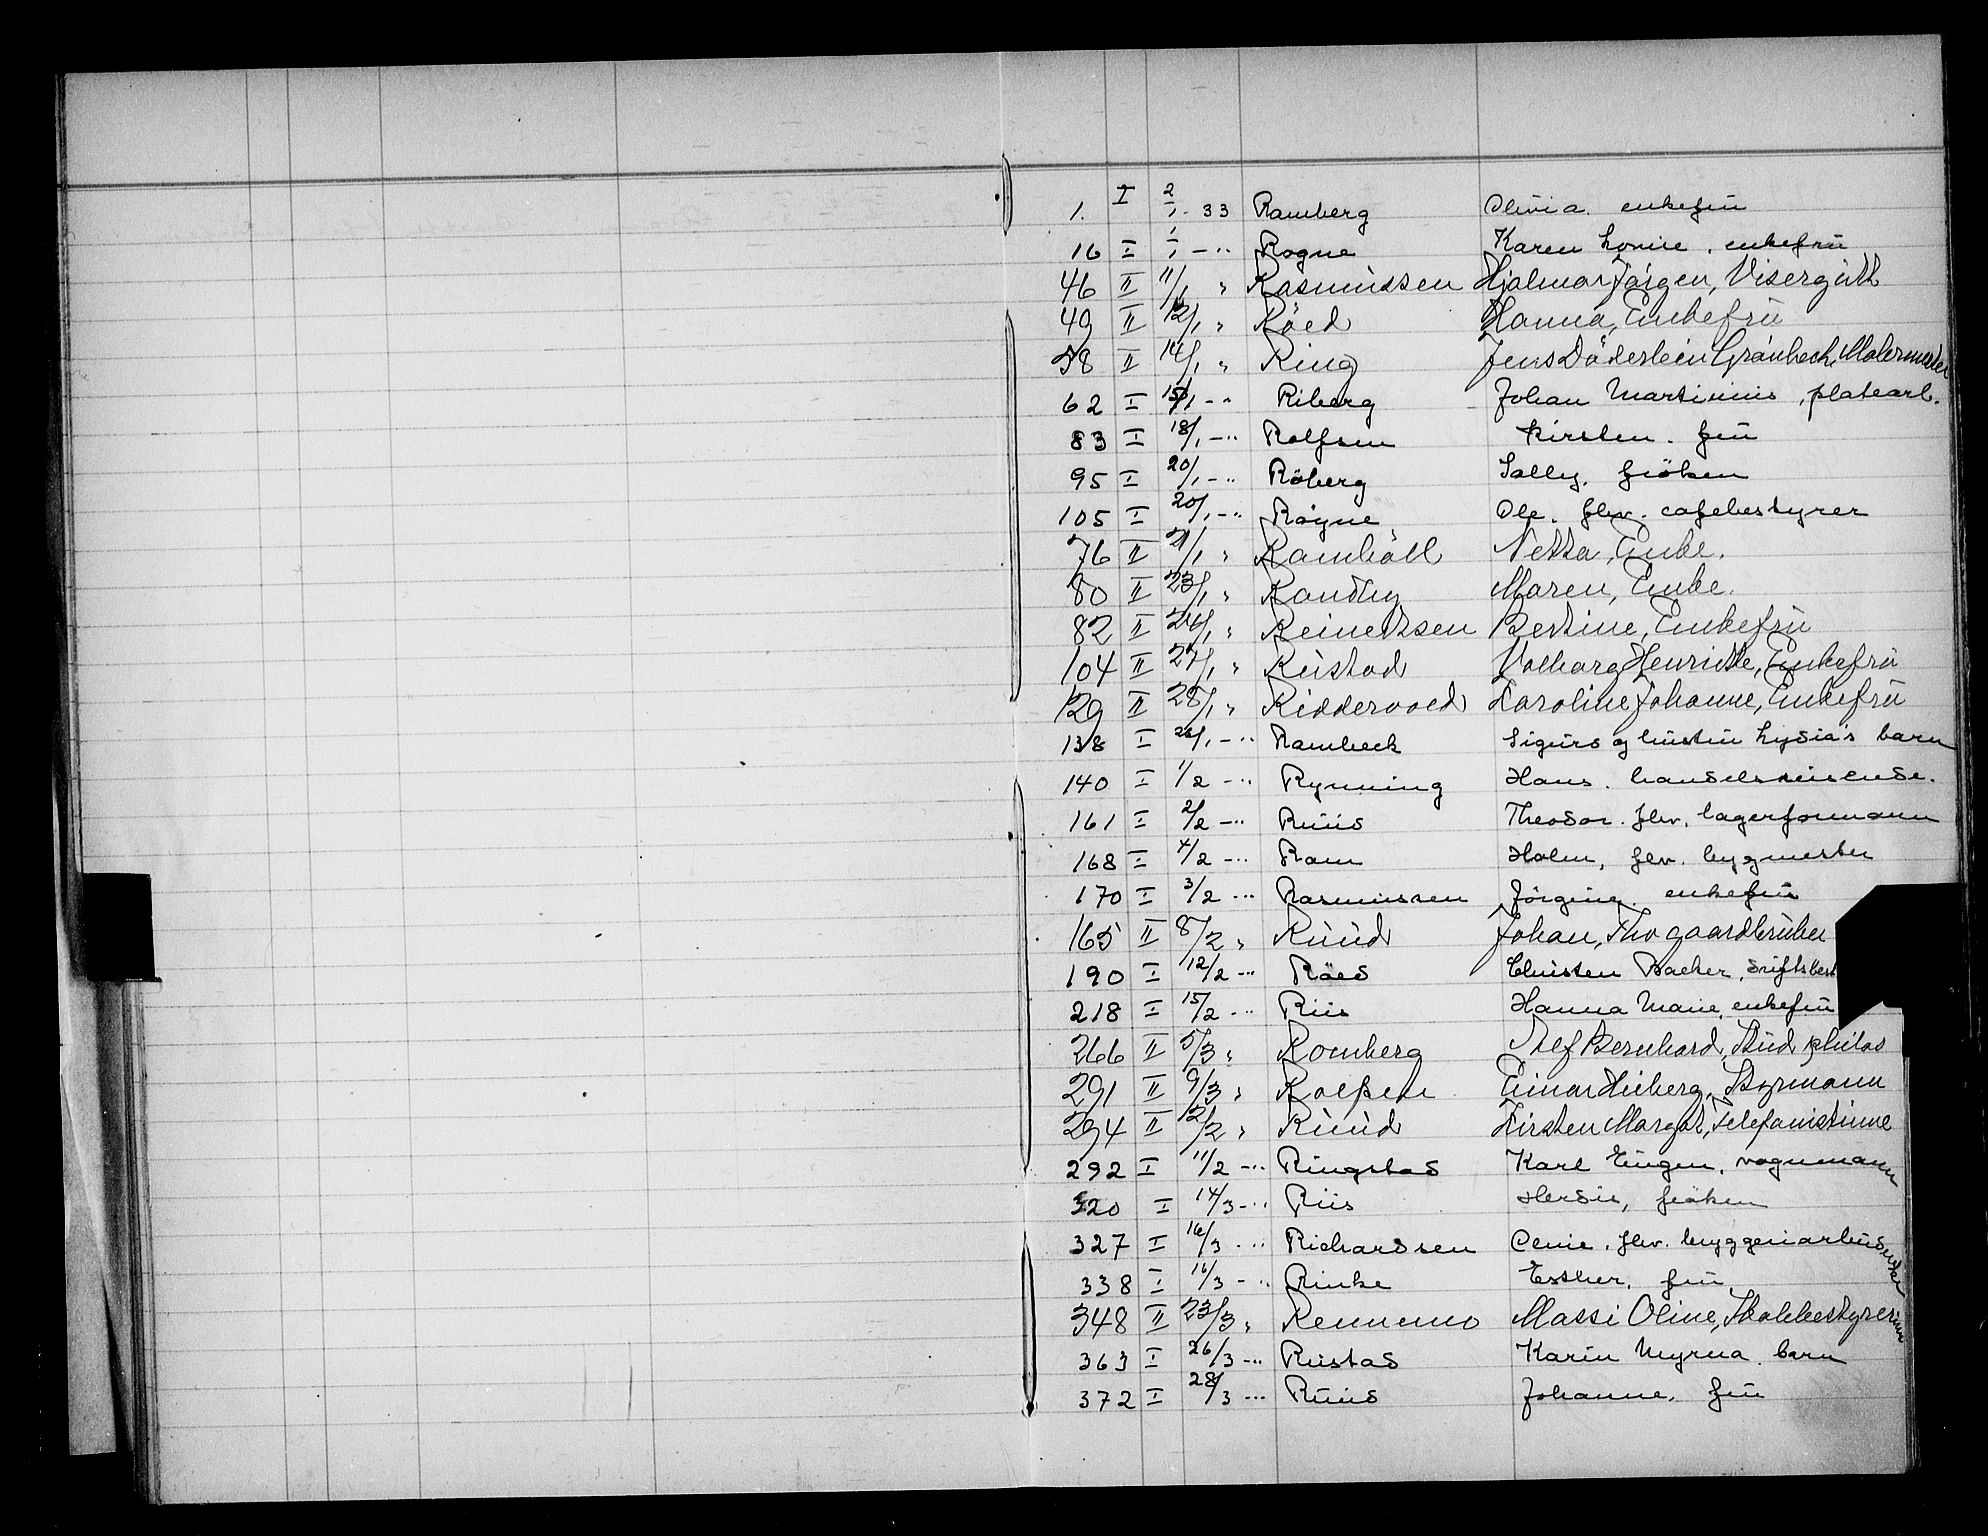 1. I 2/1 - 33 Ramberg Olivia. enkefrü
16 I 1/1 - " Rogne Karen Lovise, enkefrü
46 II 11/1 " Rasmüssen Hjalmar Jörgen, Visergütt
49 II 12/1 " Röed Hanna, Enkefrü
58 II 14/1 " Ring Jens Döderlein Grönbech, Malermester
62 I 15/1 - " Riberg Johan Martinius, platearb.
83 I 18/1 - " Rolfsen Kirsten. frü
95 I 20/1 - " Röberg Solly. fröken
105 I 20/1 - " Rögne Ole. fhv. cafebestyrer
76 II 21/1 " Ramböll Netta, Enke.
80 II 23/1 " Randby Maren, Enke.
82 II 24/1 " Reinertsen Bertine, Enkefrü
104 II 27/1 " Rüstad Valborg Henriette, Enkefrü
129 II 28/1 " Riddervold Karoline Johanne, Enkefrü
138 I 26/1 - " Rambeck Sigurd og hüstrü Lydia's barn
140 I 1/2 - " Rynning Hans. handelsreisende.
161 I 2/2 - " Rüüd Theodor. fhv. lagerformann
168 I 4/2 - " Ram Holm, fhv. bygmester
170 I 3/2 - " Rasmüssen Jörgine. enkefrü
165 II 8/2 " Rüüd Johan, Fhv gaardbrüker
190 I 12/2 - " Röed Christen Backer, driftsbest
218 I 15/2 - " Riis Hanna Marie, enkefrü
266 II 5/3 " Romberg Alef Bernhard, Stüd philos
291 II 9/3 " Rolfsen Einar Heiberg, Styrmann
294 II 12/2 " Rüüd Kirsten Margot, Telefonistinne
292 I 11/2 - " Ringstad Karl Eugen, vognmann
320 I 14/3 - " Riis Herdis, fröken
327 I 16/3 - " Richardsen Oenie, fhv. bryggeriarbeiderske
338 I 16/3 - " Rinke Esther, frü
348 II 23/3 " Rennemo Massi Oline, Skolebestyrerinne
363 I 26/3 - " Rüstad Karin Myrna. barn
372 I 28/3 - " Rüüd Johanne. frü